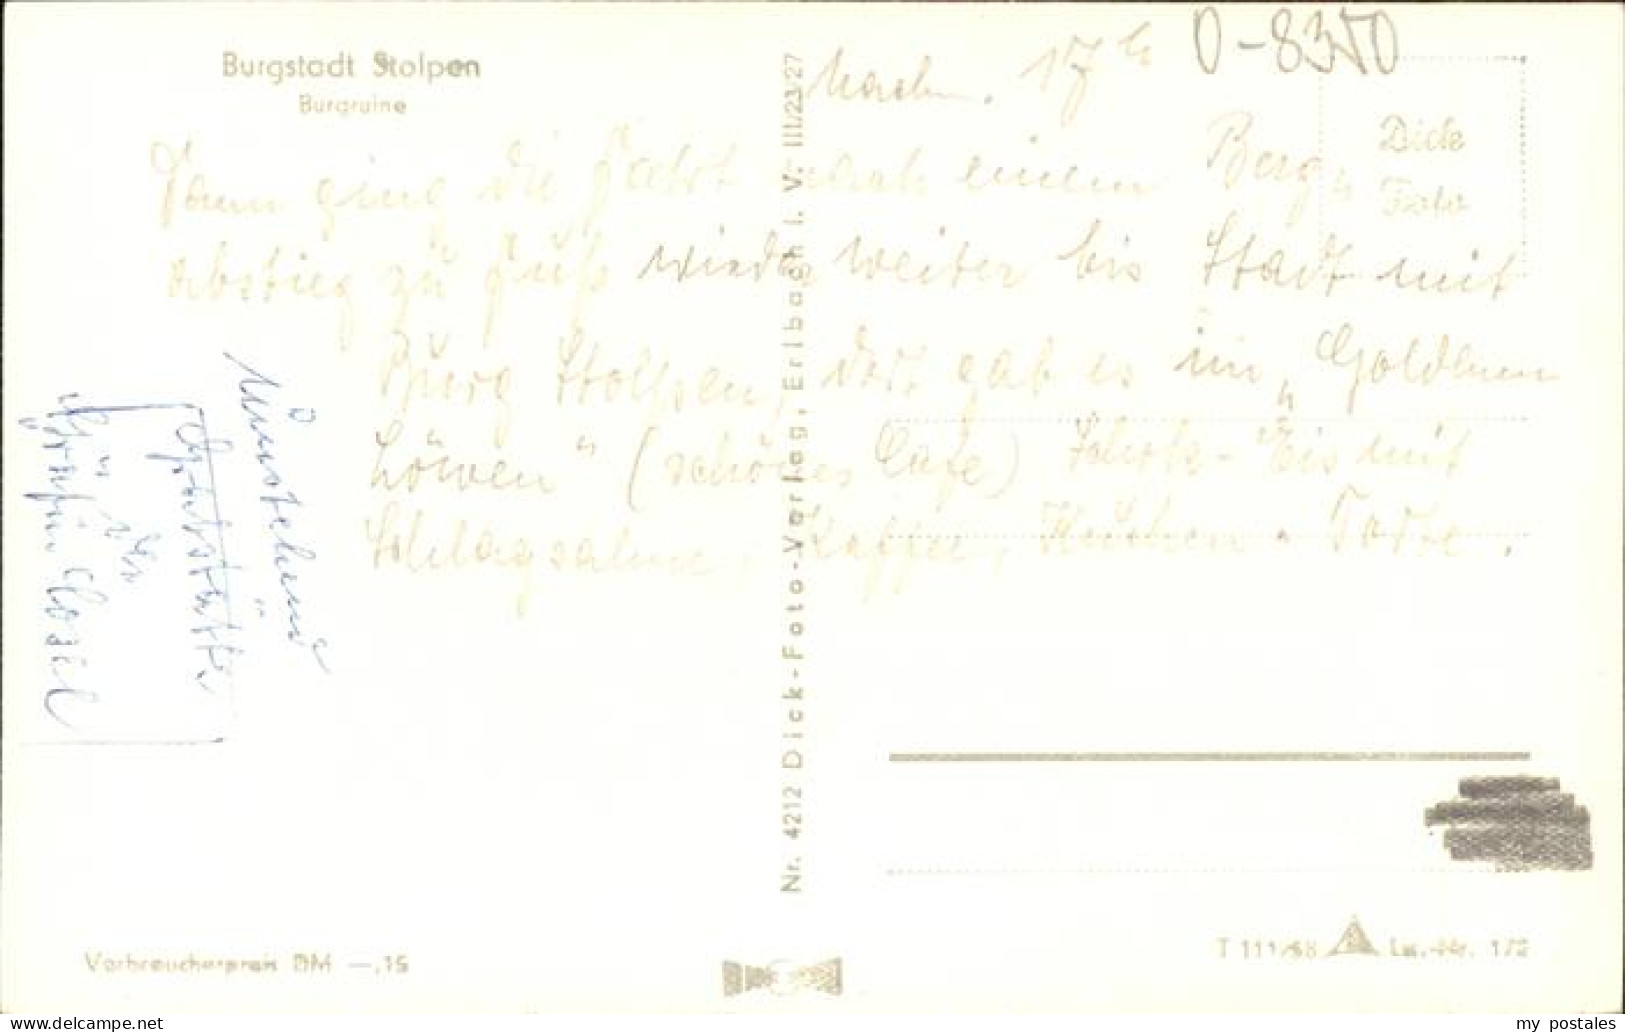 Burgstadt Stolpen
Burgruine
O-8350
Nachm. 17h
Dann ging die Fahrt nach einem Berg-
abstieg zu Fuß wieder weiter bis Stadt mit
Burg Stolpen, dort gab es im „Goldenen
Löwen" (schönes Cafe) Schok-Eis mit
Schlagsahne, Kaffee, Kuchen u Torte.
Dick
Foto
Gräfin Cosel
Nr. 4212 Dick-Foto-Verlag, Erlbach i. V. III/23/27
Verbraucherpreis DM —,15
T 111/68 Lu.-Nr. 172
my postales
www.delcampe.net